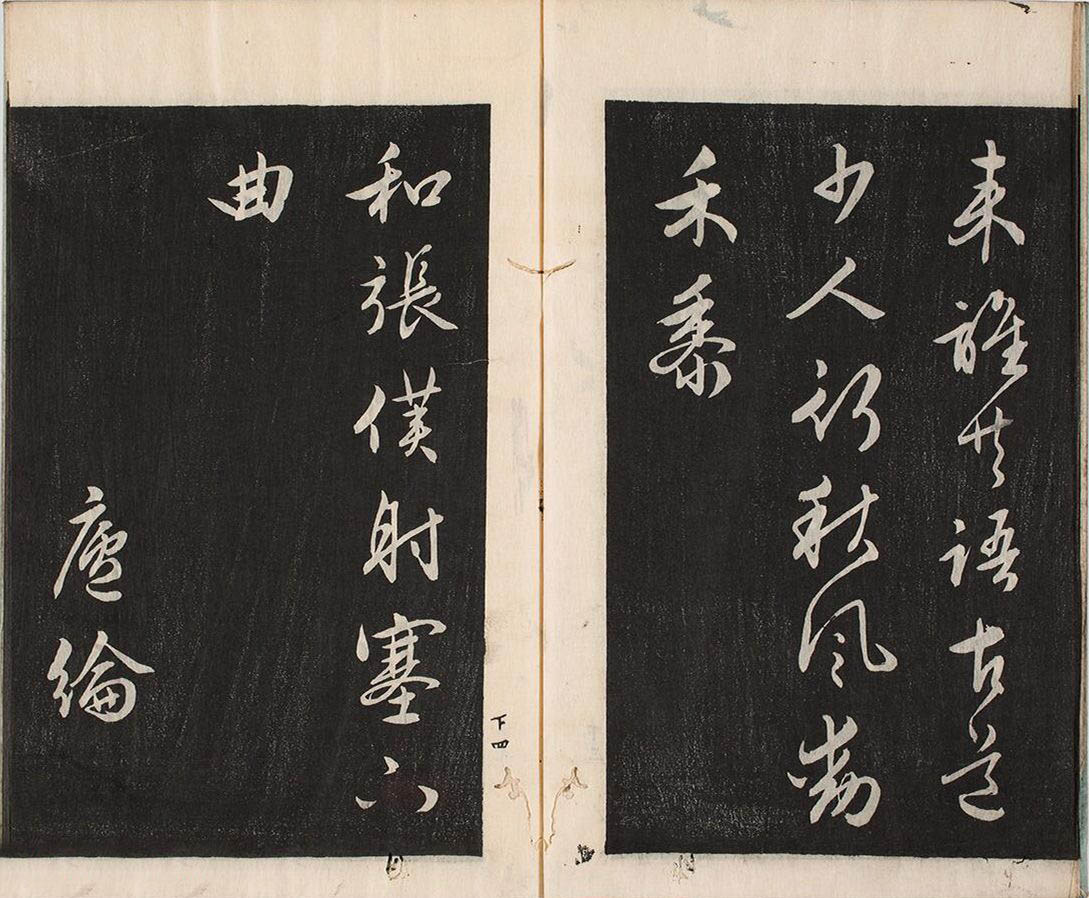 来誰共語古道
少人行秋風動
禾黍
和張僕射塞下
曲
盧綸
下四